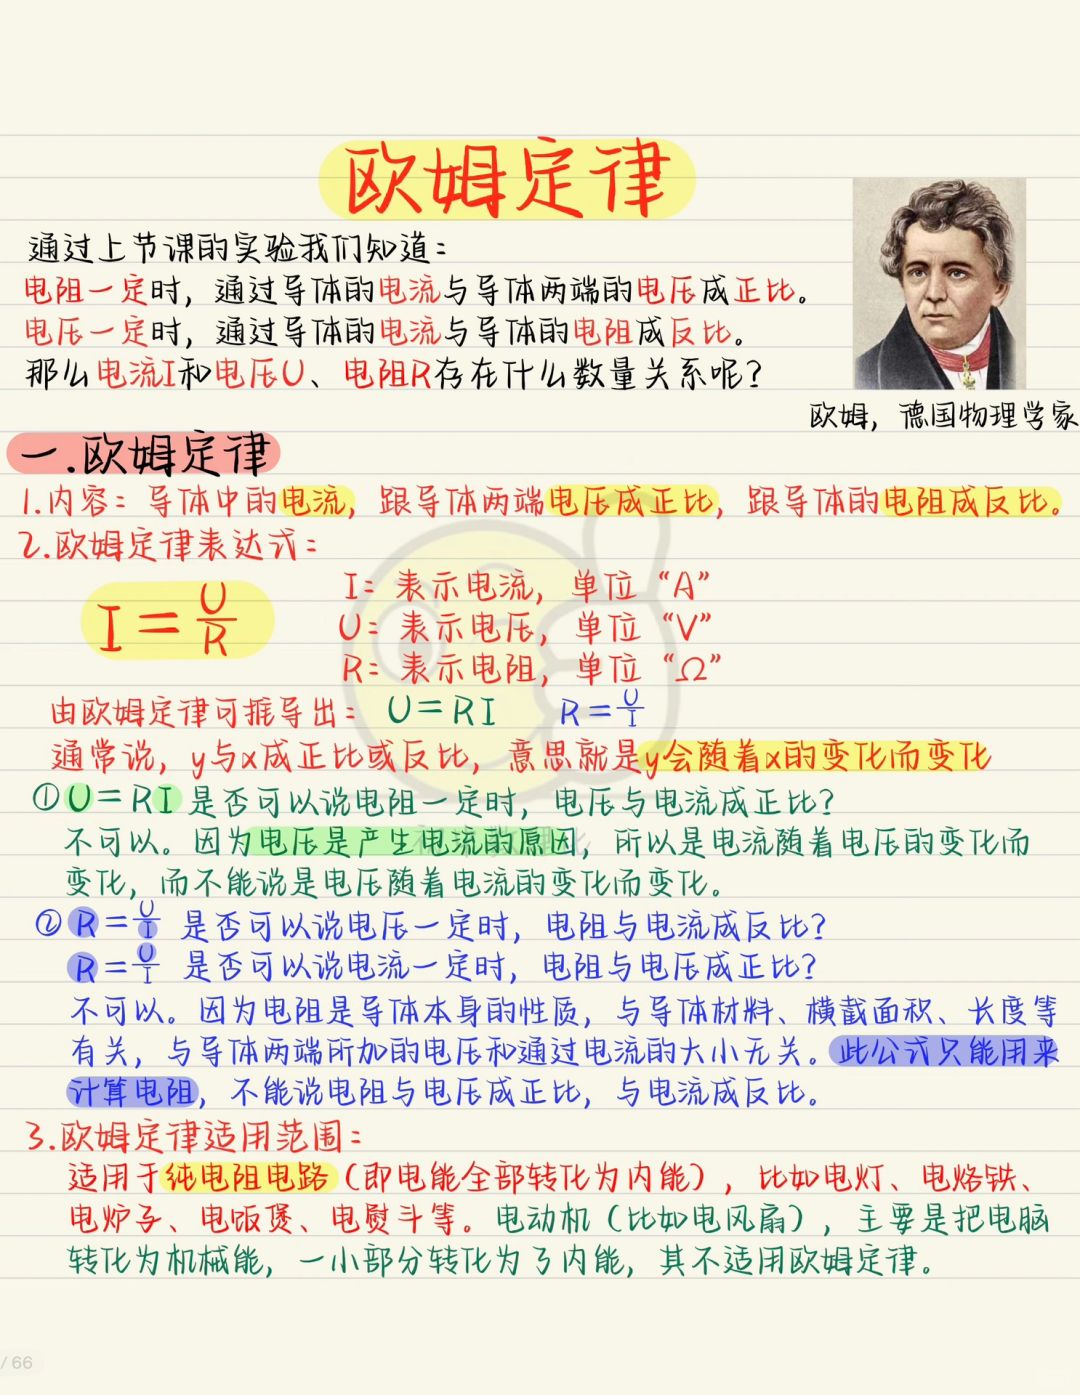 欧姆定律
通过上节课的实验我们知道:
电阻一定时，通过导体的电流与导体两端的电压成正比。
电压一定时，通过导体的电流与导体的电阻成反比。
那么电流I和电压U、电阻R存在什么数量关系呢?
欧姆，德国物理学家
一.欧姆定律
1.内容: 导体中的电流，跟导体两端电压成正比，跟导体的电阻成反比。
2.欧姆定律表达式:
I=U/R
I: 表示电流，单位“A”
U: 表示电压，单位“V”
R: 表示电阻，单位“Ω”
由欧姆定律可推导出: U=RI R=U/I
通常说，y与x成正比或反比，意思就是y会随着x的变化而变化
①U=RI是否可以说电阻一定时，电压与电流成正比?
不可以。因为电压是产生电流的原因，所以是电流随着电压的变化而
变化，而不能说是电压随着电流的变化而变化。
②R=U/I 是否可以说电压一定时，电阻与电流成反比?
R=U/I 是否可以说电流一定时，电阻与电压成正比?
不可以。因为电阻是导体本身的性质，与导体材料、横截面积、长度等
有关，与导体两端所加的电压和通过电流的大小无关。此公式只能用来
计算电阻，不能说电阻与电压成正比，与电流成反比。
3.欧姆定律适用范围:
适用于纯电阻电路（即电能全部转化为内能），比如电灯、电烙铁、
电炉子、电饭煲、电熨斗等。电动机（比如电风扇），主要是把电脑
转化为机械能，一小部分转化为了内能，其不适用欧姆定律。
/ 66